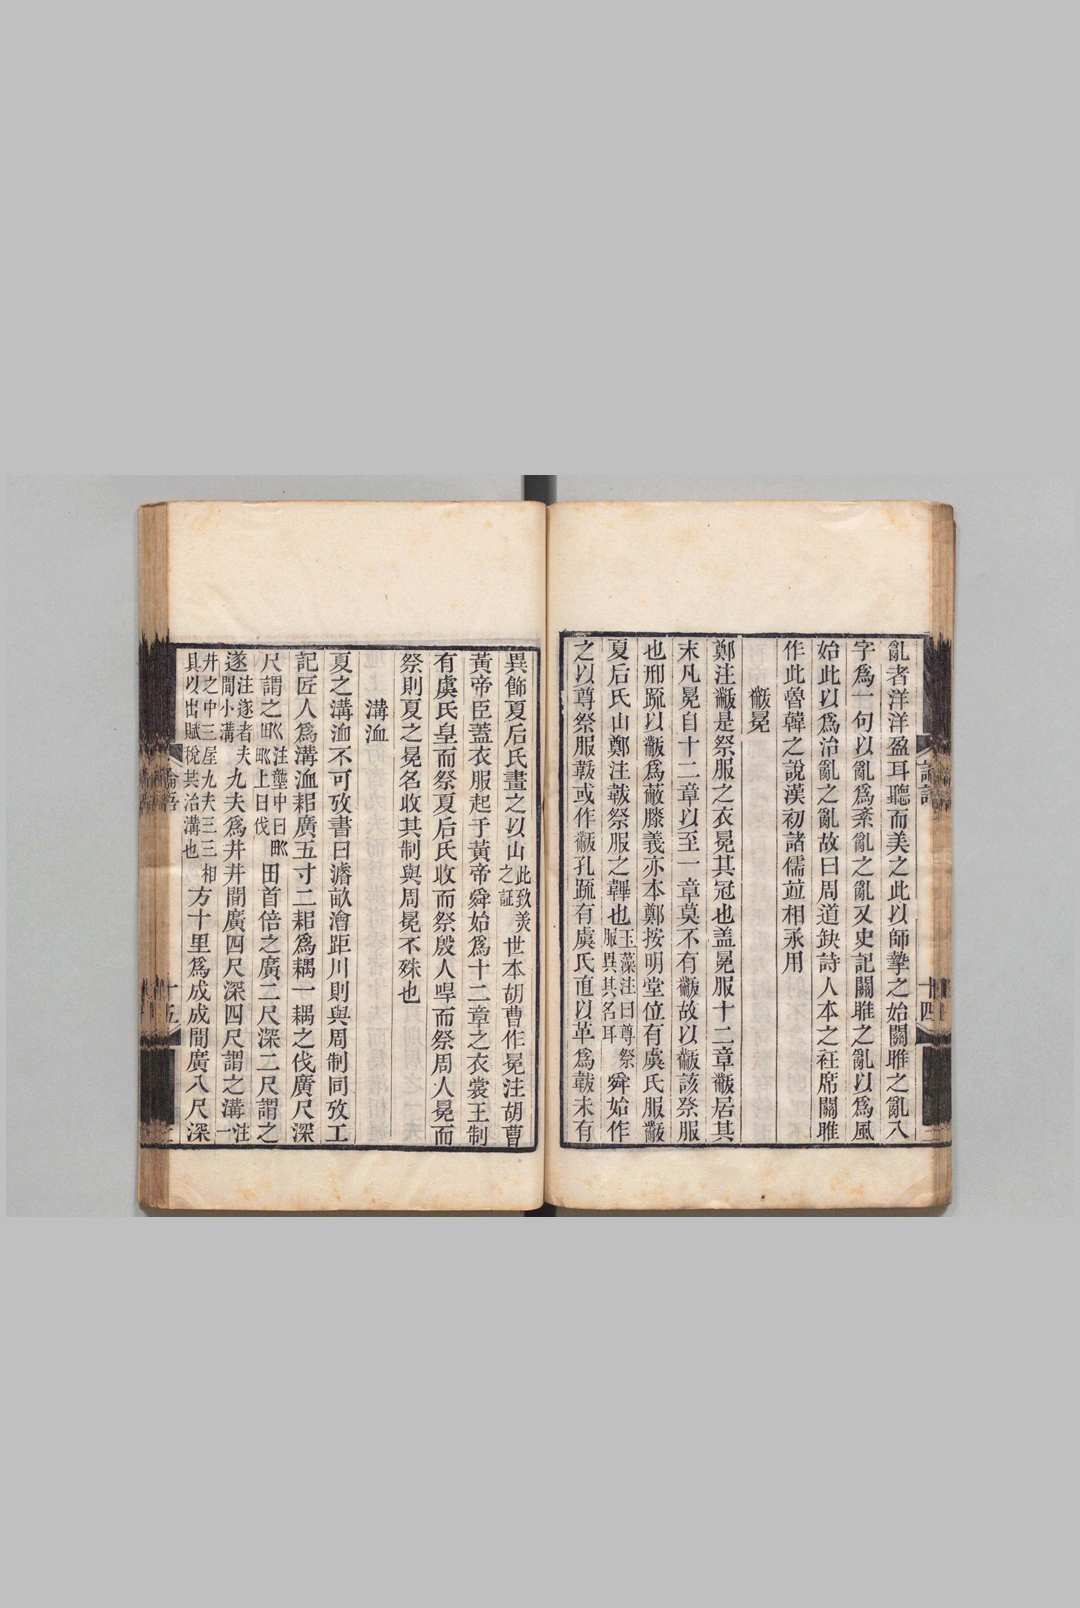 亂者洋洋盈耳聽而美之此以師摯之始關雎之亂八
字爲一句以亂爲紊亂之亂又史記關雎之亂以爲風
始此以爲治亂之亂故曰周道缺詩人本之袵席關雎
作此魯韓之說漢初諸儒竝相承用
黻冕
鄭注黻是祭服之衣冕其冠也盖冕服十二章黻居其
末凡冕自十二章以至一章莫不有黻故以黻該祭服
也邢疏以黻爲蔽膝義亦本鄭按明堂位有虞氏服黻
夏后氏山鄭注韍祭服之韠也玉藻注曰尊祭服異其名耳舜始作
之以尊祭服韍或作黻孔疏有虞氏直以革爲韍未有
異飾夏后氏畫之以山此致美之証世本胡曹作冕注胡曹
黃帝臣蓋衣服起于黃帝舜始爲十二章之衣裳王制
有虞氏皇而祭夏后氏收而祭殷人哻而祭周人冕而
祭則夏之冕名收其制與周冕不殊也
溝洫
夏之溝洫不可攷書曰濬畎澮距川則與周制同攷工
記匠人爲溝洫耜廣五寸二耜爲耦一耦之伐廣尺深
尺謂之𤰕巜注壟中曰𤰕𤰕上曰伐田首倍之廣二尺深二尺謂之
遂注遂者夫間小溝九夫爲井井間廣四尺深四尺謂之溝注一
井之中三屋九夫三三相具以出賦稅共治溝也方十里爲成成間廣八尺深
論語
十四
論語
十五